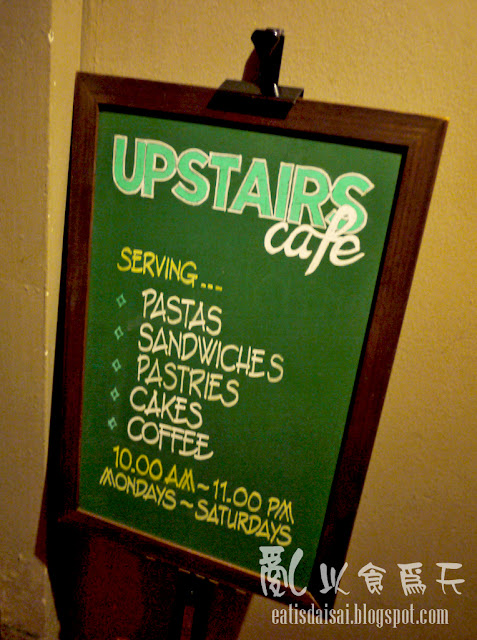 UPSTAIRS
cafe
SERVING...
PASTAS
SANDWICHES
PASTRIES
CAKES
COFFEE
10.00 AM ~ 11.00 PM
MONDAYS ~ SATURDAYS
亂以食為天
eatisdaisai.blogspot.com